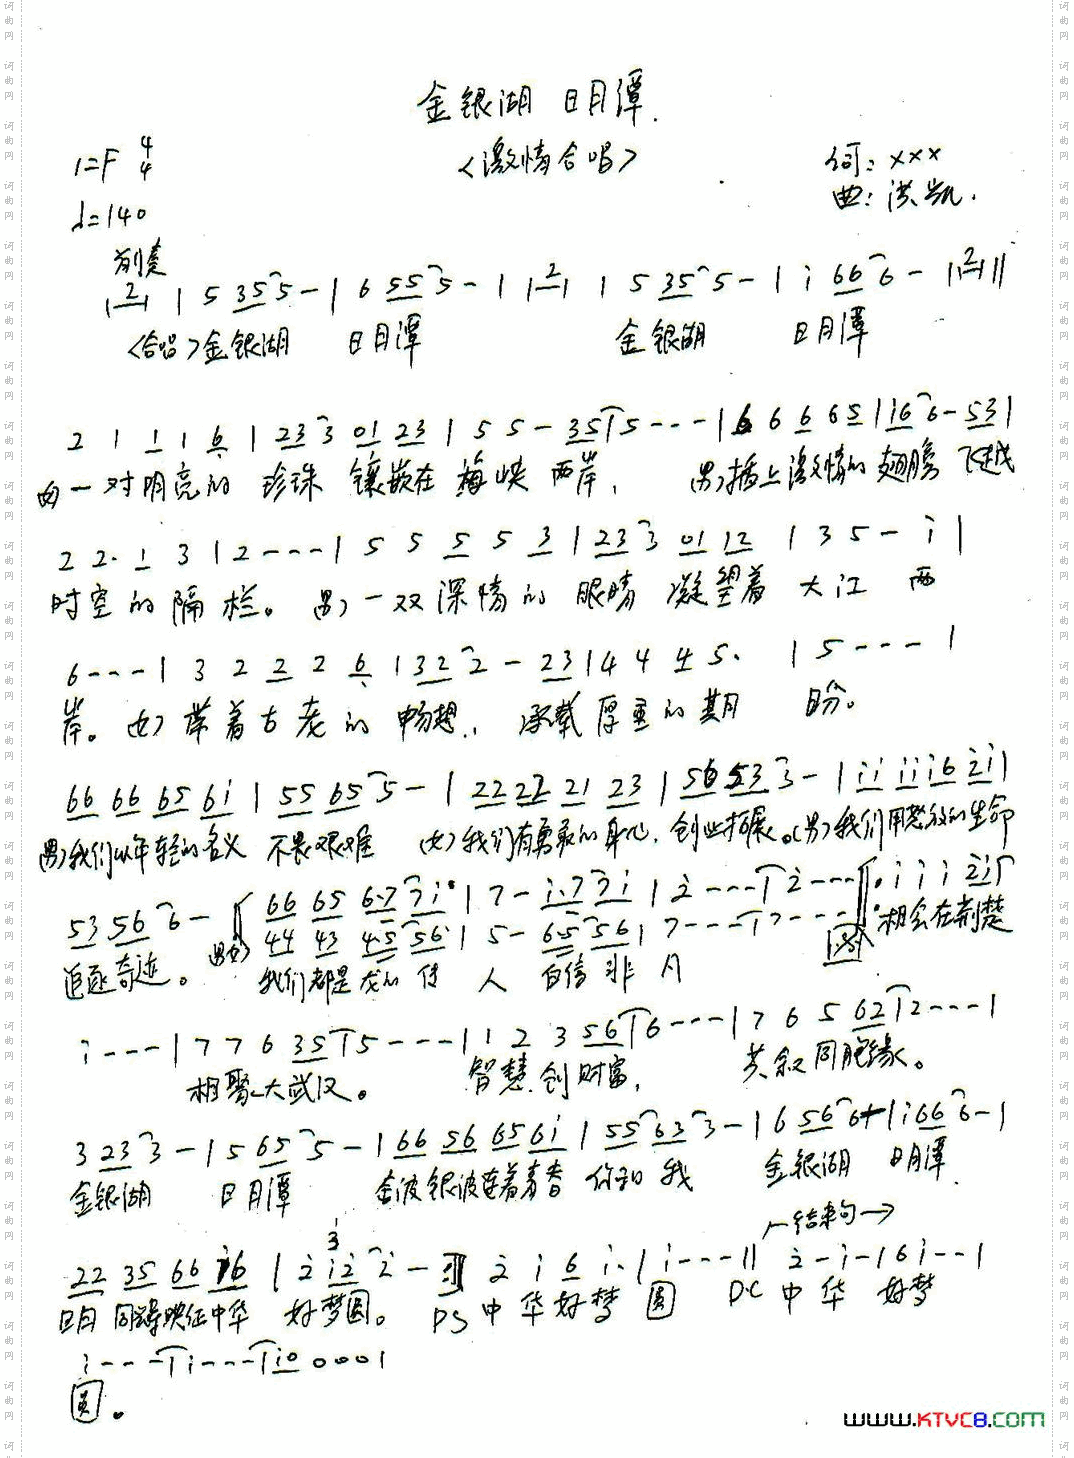 金银湖 日月潭
<激情合唱>
1=F 4/4
词: ×××
♩=140
曲: 洪凯.
前奏
|2| | 5 35 5 - | 6 55 5 - | |2| | 5 35 5 - | i 66 6 - |2||
<合唱>金银湖 日月潭 金银湖 日月潭
2 1 1 1 6 | 23 3 01 23 | 5 5 - 35 | 5 - - - | 6 6 6 6 5 | i6 6 - 53 |
一对明亮的 珍珠 镶嵌在 两岸, 男)插上激情的 翅膀 飞越
2 2. 1 3 | 2 - - - | 5 5 5 5 3 | 23 3 01 12 | 3 5 - i |
时空的隔栏。 男)一双深情的 眼睛 凝望着 大江 两
6 - - - | 3 2 2 2 6 | 32 2 - 23 | 4 4 4 5. | 5 - - - |
岸。 女)带着古老的 畅想, 承载厚重的期 盼。
66 66 65 6i | 55 65 5 - | 22 22 21 23 | 56 53 3 - | ii ii i6 2i |
男)我们以年轻的名义 不畏艰难 女)我们有勇敢的身心, 创业拓展。(男)我们用 的生命
53 56 6 - 66 65 6.7 7i | 7 - i.7 7i | 2 - - - | 2 - - - i i i 2i
44 43 4.5 56 | 5 - 6.5 56 | 7 - - - | 7 - - -
追逐奇迹。 我们都是龙的传 人 自信 非 凡 相会在荆楚
i - - - | 7 7 6 35 | 5 - - - | 1 2 3 56 | 6 - - - | 7 6 5 62 | 2 - - - |
相聚大武汉。 智慧创财富, 共叙同胞缘。
3 23 3 - | 5 65 5 - | 66 56 65 6i | 55 63 3 - | 6 56 6 - | i 66 6 - |
金银湖 日月潭 金波银波连着 你和我 金银湖 日月潭
结束句→
22 35 66 i6 | 2 i2 2 - 2 i 6 i. | i - - - || 2 - i - | 6 i - - |
日月同 中华 好梦圆。 DS 中华好梦 圆 DC 中 华 好梦
i - - - | i - - - | i0 0 0 0 |
圆。
www.KTVC8.com